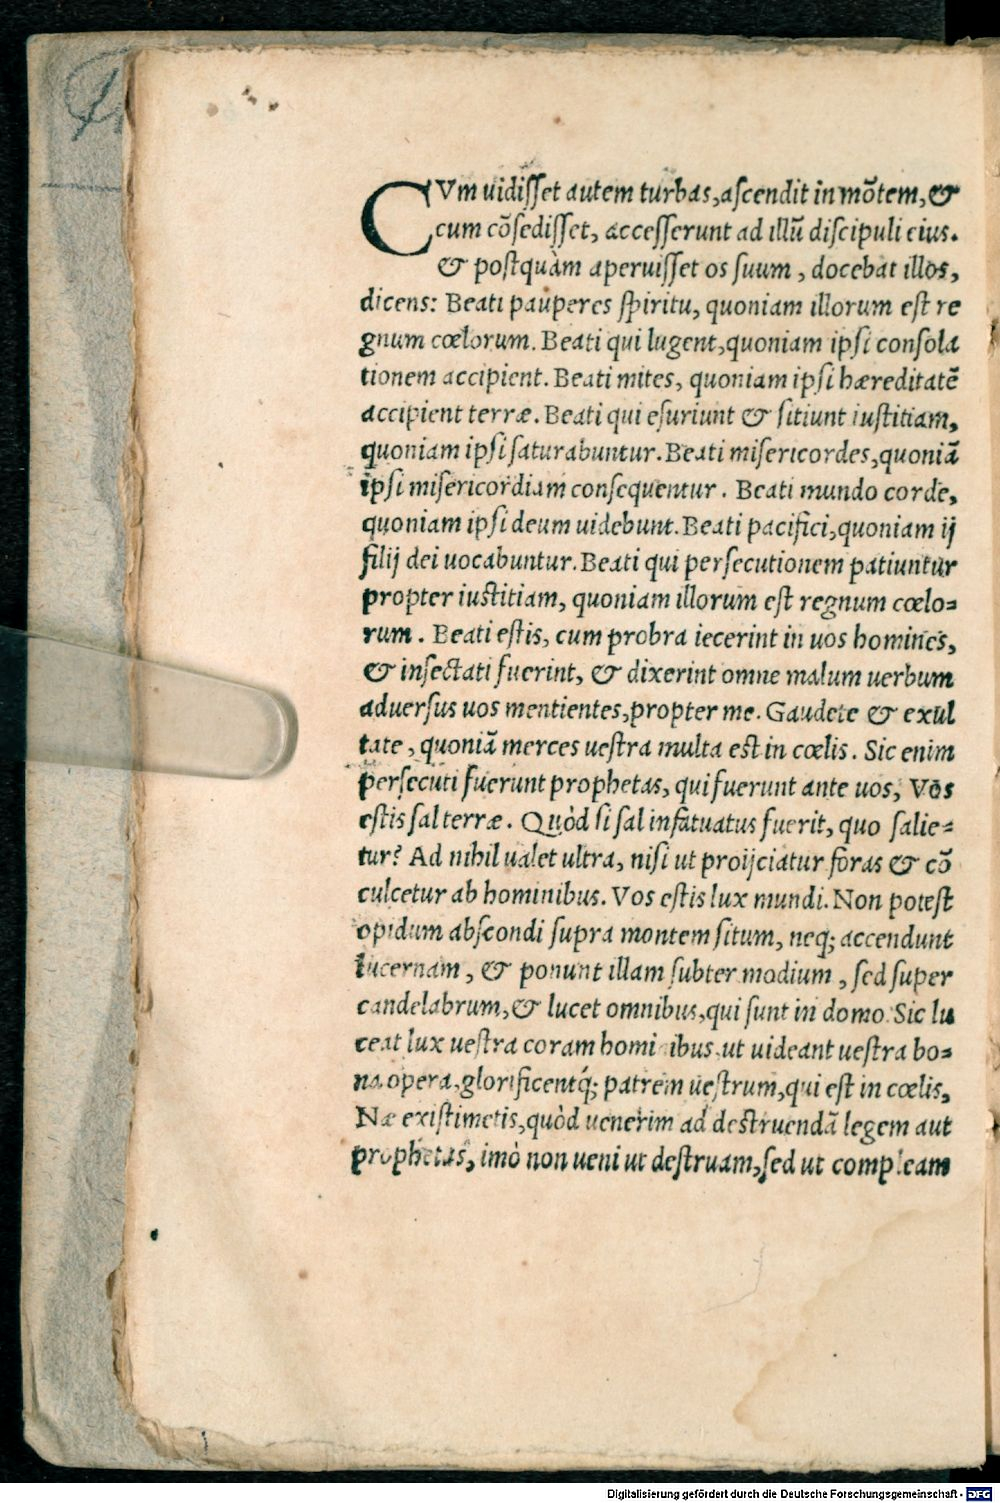 CVm uidisset autem turbas, ascendit in mõtem, &
cum cõsedisset, accesserunt ad illũ discipuli eius.
& postquàm aperuisset os suum, docebat illos,
dicens: Beati pauperes spiritu, quoniam illorum est re
gnum cœlorum. Beati qui lugent, quoniam ipsi consola
tionem accipient. Beati mites, quoniam ipsi hæreditatẽ
accipient terræ. Beati qui esuriunt & sitiunt iustitiam,
quoniam ipsi saturabuntur. Beati misericordes, quoniã
ipsi misericordiam consequentur. Beati mundo corde,
quoniam ipsi deum uidebunt. Beati pacifici, quoniam ij
filij dei uocabuntur. Beati qui persecutionem patiuntur
propter iustitiam, quoniam illorum est regnum cœlo=
rum. Beati estis, cum probra iecerint in uos homines,
& insectati fuerint, & dixerint omne malum uerbum
aduersus uos mentientes, propter me. Gaudete & exul
tate, quoniã merces uestra multa est in cœlis. Sic enim
persecuti fuerunt prophetas, qui fuerunt ante uos, Vos
estis sal terræ. Quòd si sal infatuatus fuerit, quo salie=
tur? Ad nihil ualet ultra, nisi ut proijciatur foras & cõ
culcetur ab hominibus. Vos estis lux mundi. Non potest
opidum abscondi supra montem situm, neq; accendunt
lucernam, & ponunt illam subter modium, sed super
candelabrum, & lucet omnibus, qui sunt in domo. Sic lu
ceat lux uestra coram homi ibus, ut uideant uestra bo=
na opera, glorificentq́; patrem uestrum, qui est in cœlis,
Næ existimetis, quòd uenerim ad destruendã legem aut
prophetas, imò non ueni ut destruam, sed ut compleam
Digitalisierung gefördert durch die Deutsche Forschungsgemeinschaft - DFG